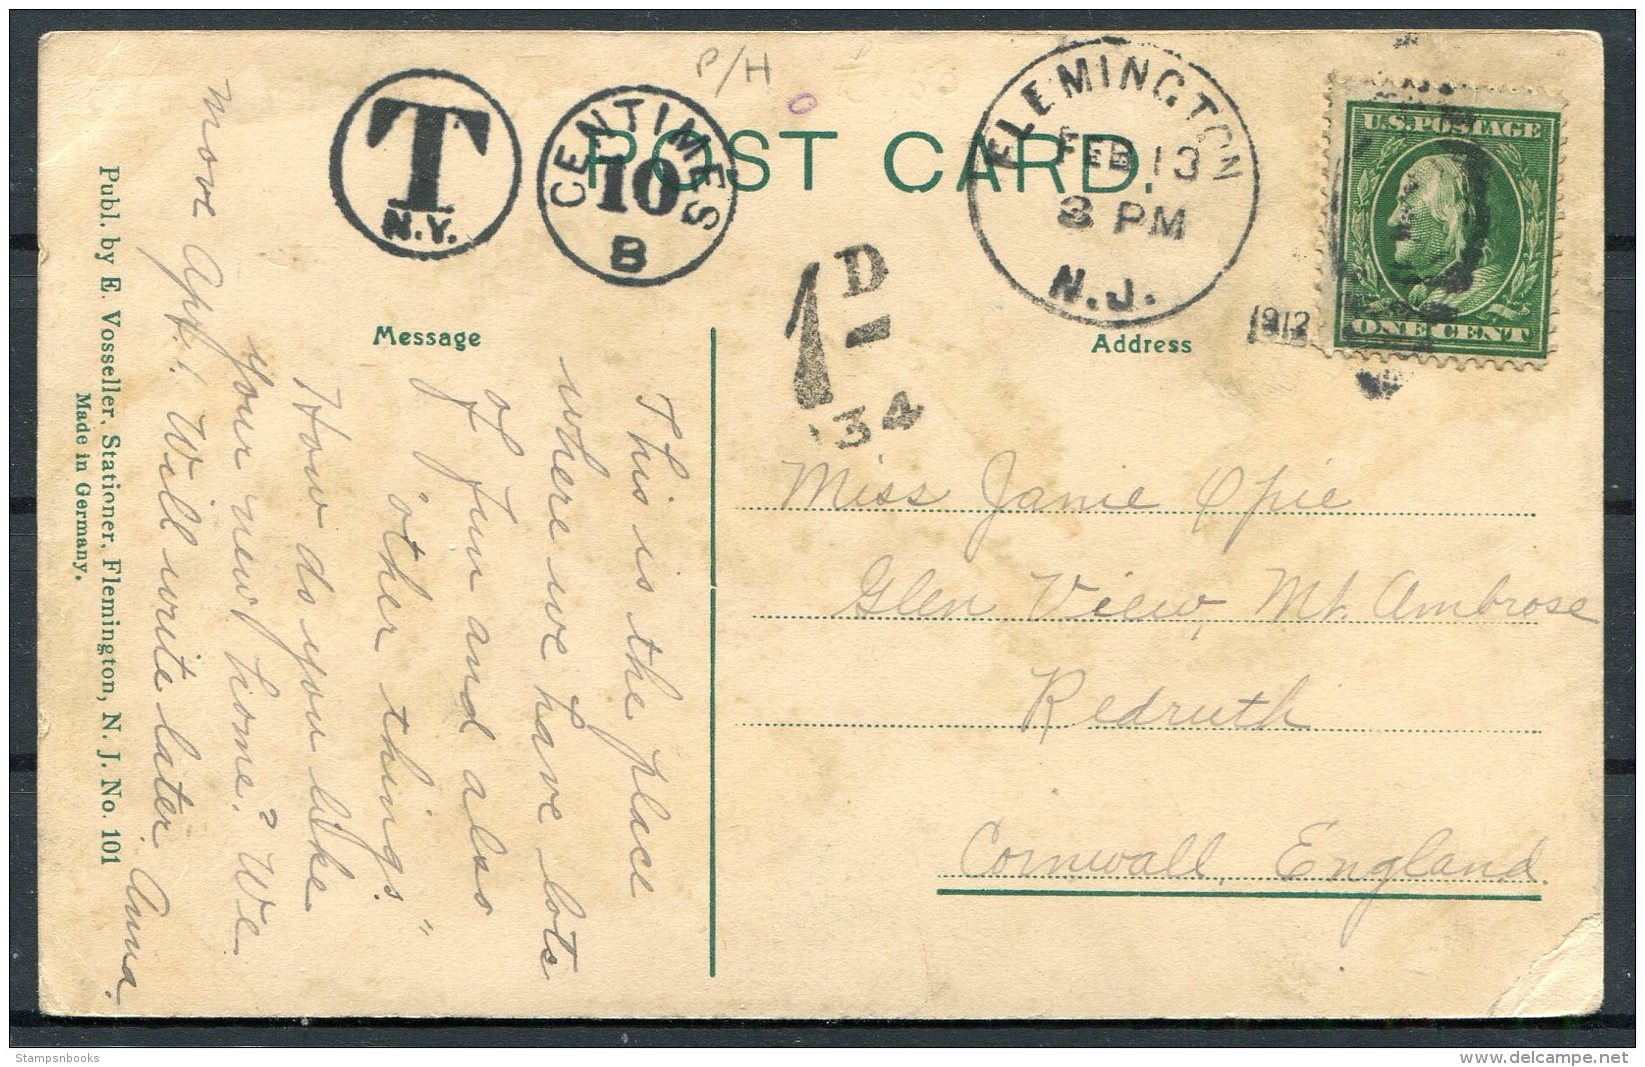 P/H
POST CARD.
T
N.Y.
CENTIMES
10
B
FLEMINGTON
FEB 13
3 PM
N.J.
1912
U.S. POSTAGE
ONE CENT
1D
34
Message
Address
This is the place
where we have lots
of fun and also
"other things."
How do you like
your new home? We
move Apr. 1. Will write later. Anna.
Miss Janie Opie
Glen View, Mt. Ambrose
Redruth
Cornwall, England.
Publ. by E. Vosseller, Stationer, Flemington, N. J. No. 101
Made in Germany.
Stampsnbooks
www.delcampe.net